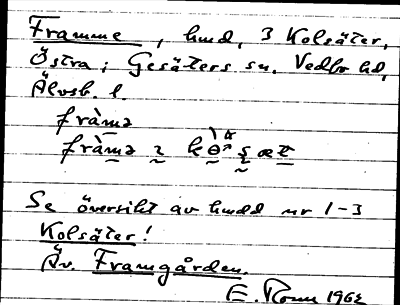 Framme, hmd, 3 Kolsäter,
Östra; Gesäters sn. Vedbo hd,
Älvsb l.
fràmə
fràmə
Se översikt av hmdd nr 1-3
Kolsäter!
Äv. Framgården.
E. 1962